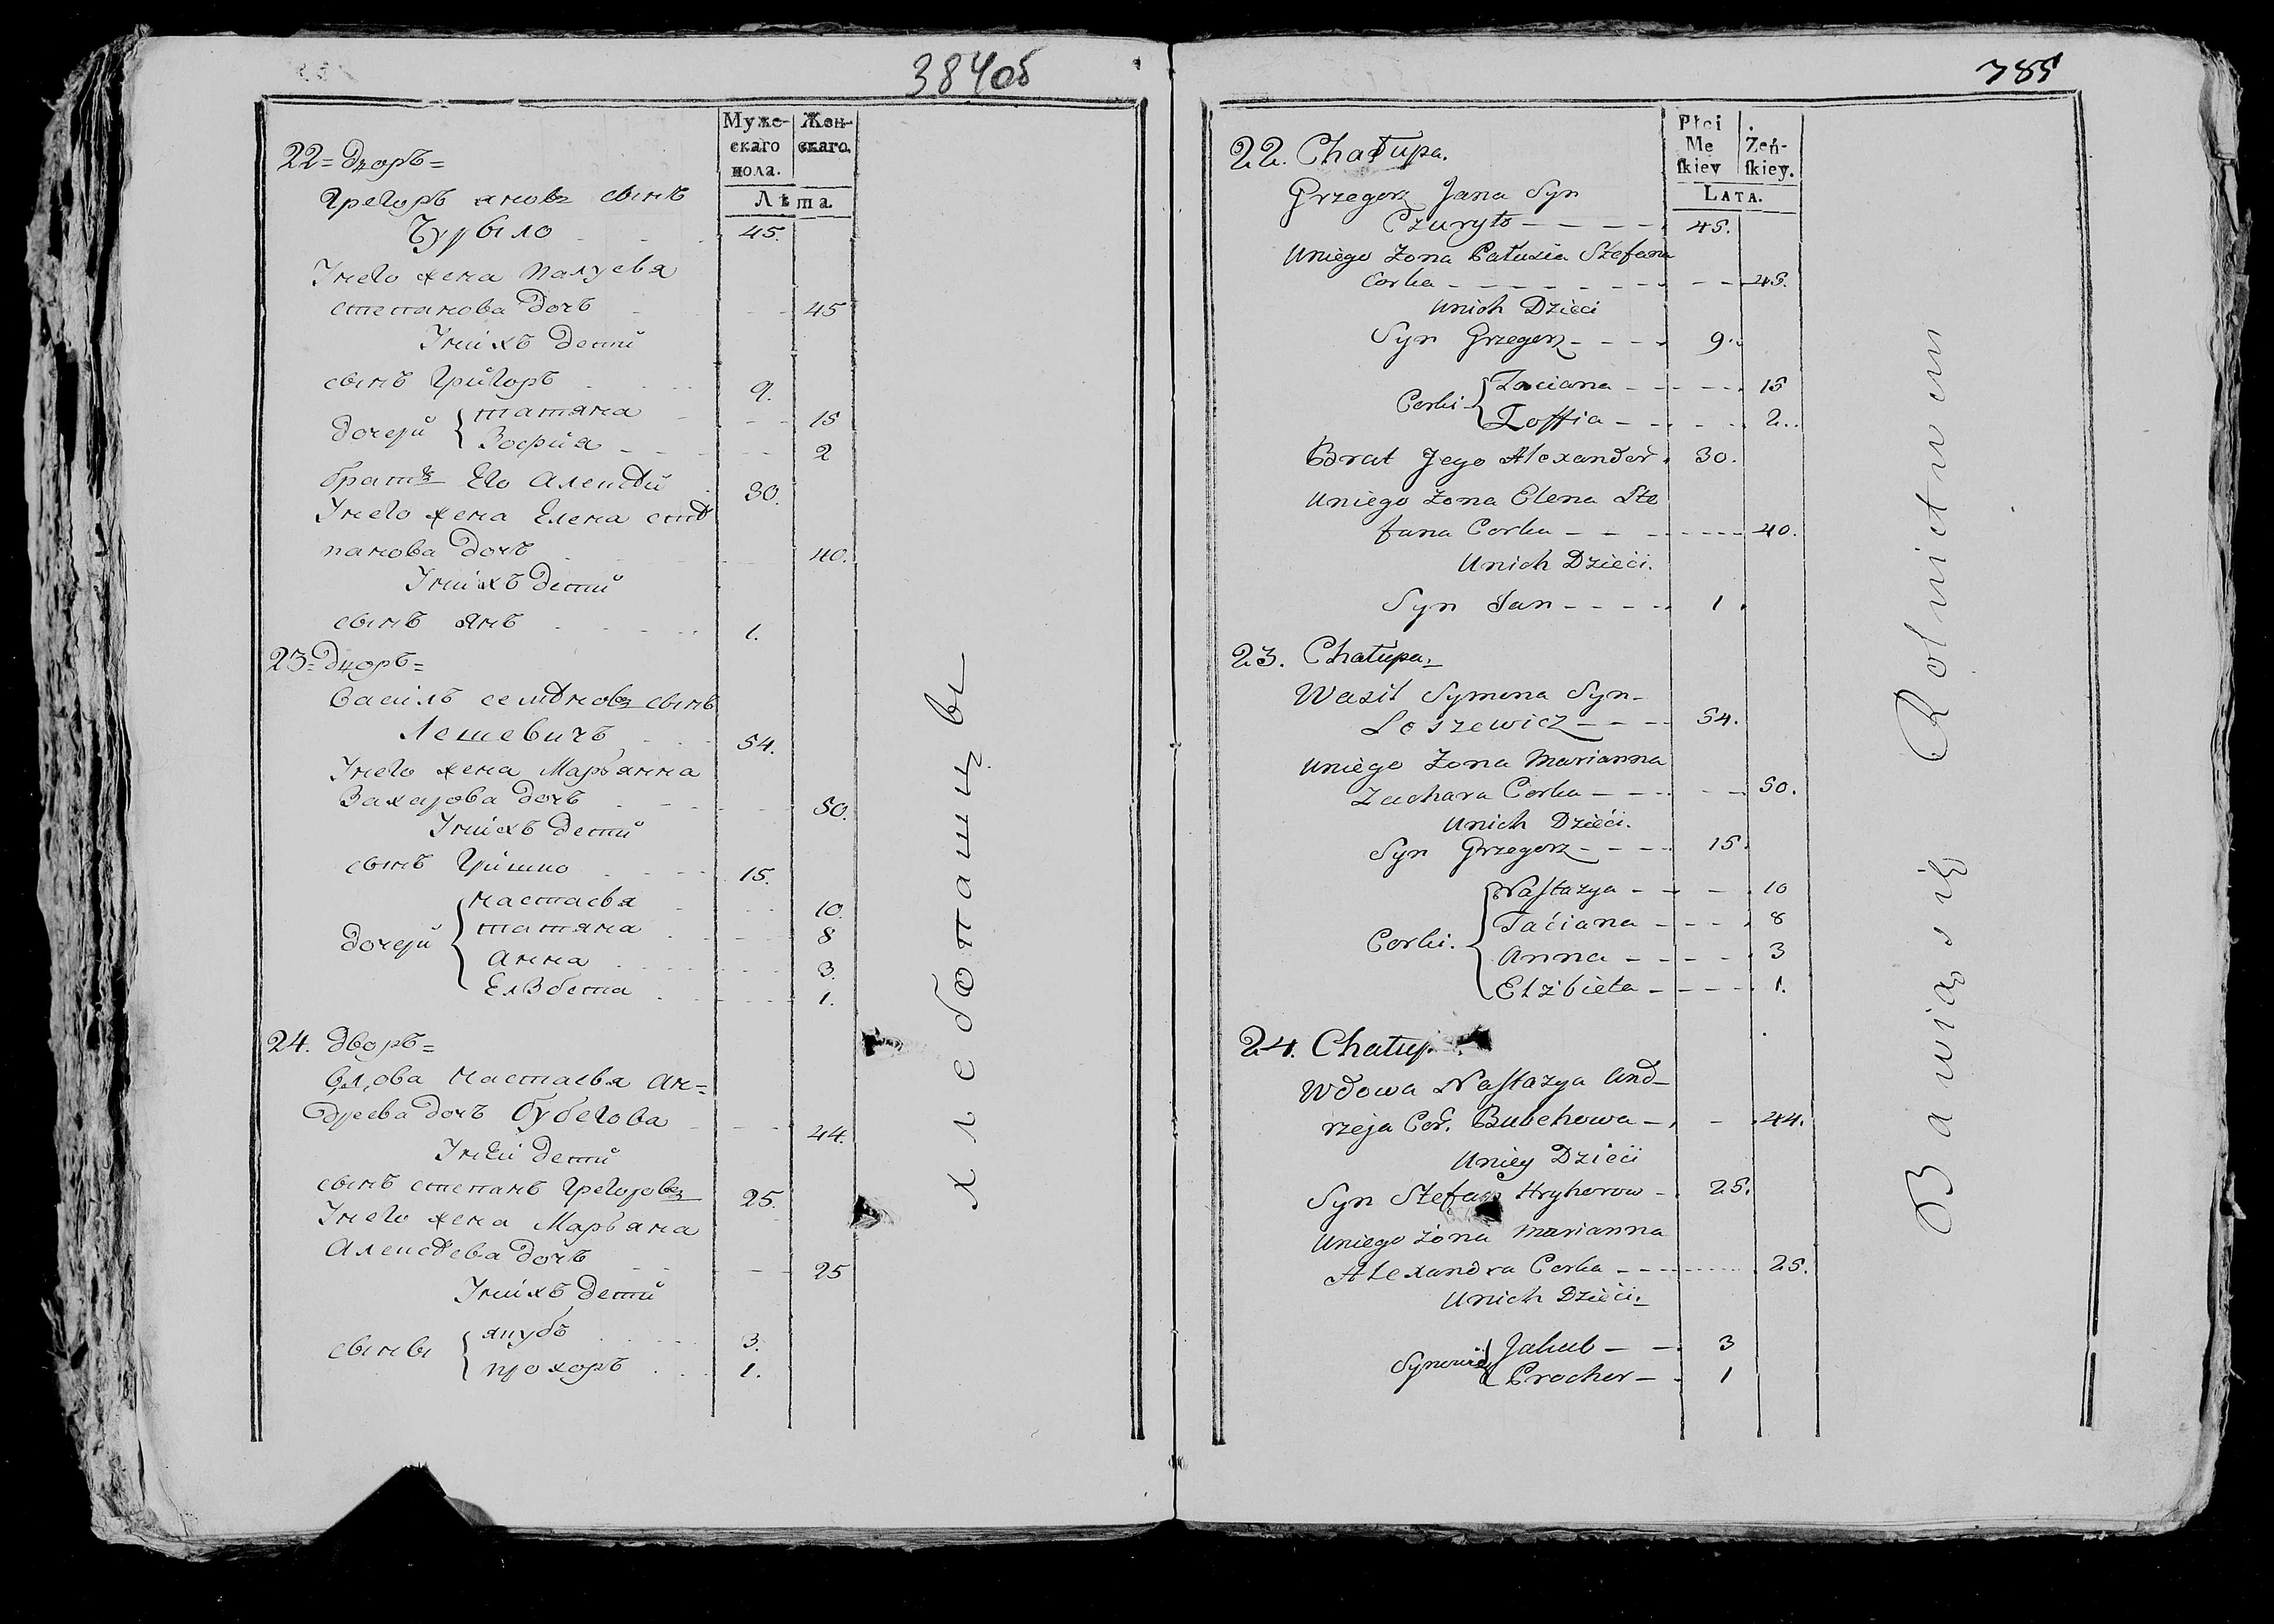 384об
Муже- Жен-
скаго скаго.
пола.
Лѣта
22= Дворъ=
Грегоръ яновъ сынъ
Чурыло 45.
Унего жена Палусья
степанова дочъ 45
Унихъ дети
сынъ Григоръ 9.
дочери { татяна 15
Зофия 2
братъ Его Алексѣй 30.
Унего жена Елена стѣ
панова дочъ 40.
Унихъ дети
сынъ янъ 1.
23= Дворъ=
Василь семѣновъ сынъ
Лешевичъ 54.
Унего жена Маръянна
Захарова дочъ 50.
Унихъ дети
сынъ Гришко 15.
дочери { настасья 10.
татяна 8
Анна 3.
Елзбета 1.
24. Дворъ=
вдова Настасья Ан=
дреева дочъ бубегова 44.
Унеи дети
сынъ степанъ Грегоровъ 25.
Унего жена Маръяна
Алексѣева дочъ 25
Унихъ дети
сыны { якубъ 3.
прохоръ 1.
хлебопашцы
385
Płci
Mę Żeń-
ſkiey ſkiey.
LATA.
22. Chałupa.
Grzegorz Jana Syn
Czuryło 45.
Uniego Zona Pałuzia Stefana
Corka 45.
Unich Dzieci
Syn Grzegorz 9.
Corki { Taciana 15
Zoffia 2.
Brat Jego Alexander 30.
Uniego Zona Elena Ste
fana Corka 40.
Unich Dzieci.
Syn Jan 1.
23. Chałupa.
Wasil Symona Syn
Loszewicz 54.
Uniego Zona Marianna
Zachara Corka 50.
Unich Dzieci.
Syn Grzegorz 15.
Corki. { Naſtazya 10
Taciana 8
Anna 3
Elżbieta 1.
24. Chałup
Wdowa Naſtazya And-
rzeja Cor. Bubehowa 44.
Uniey Dzieci
Syn Stefan Hryhorow 25.
Uniego żona Marianna
Alexandra Corka 25.
Unich Dzieci.
Synowie { Jakub 3
Prochor 1
Bawią się Rolnictwem